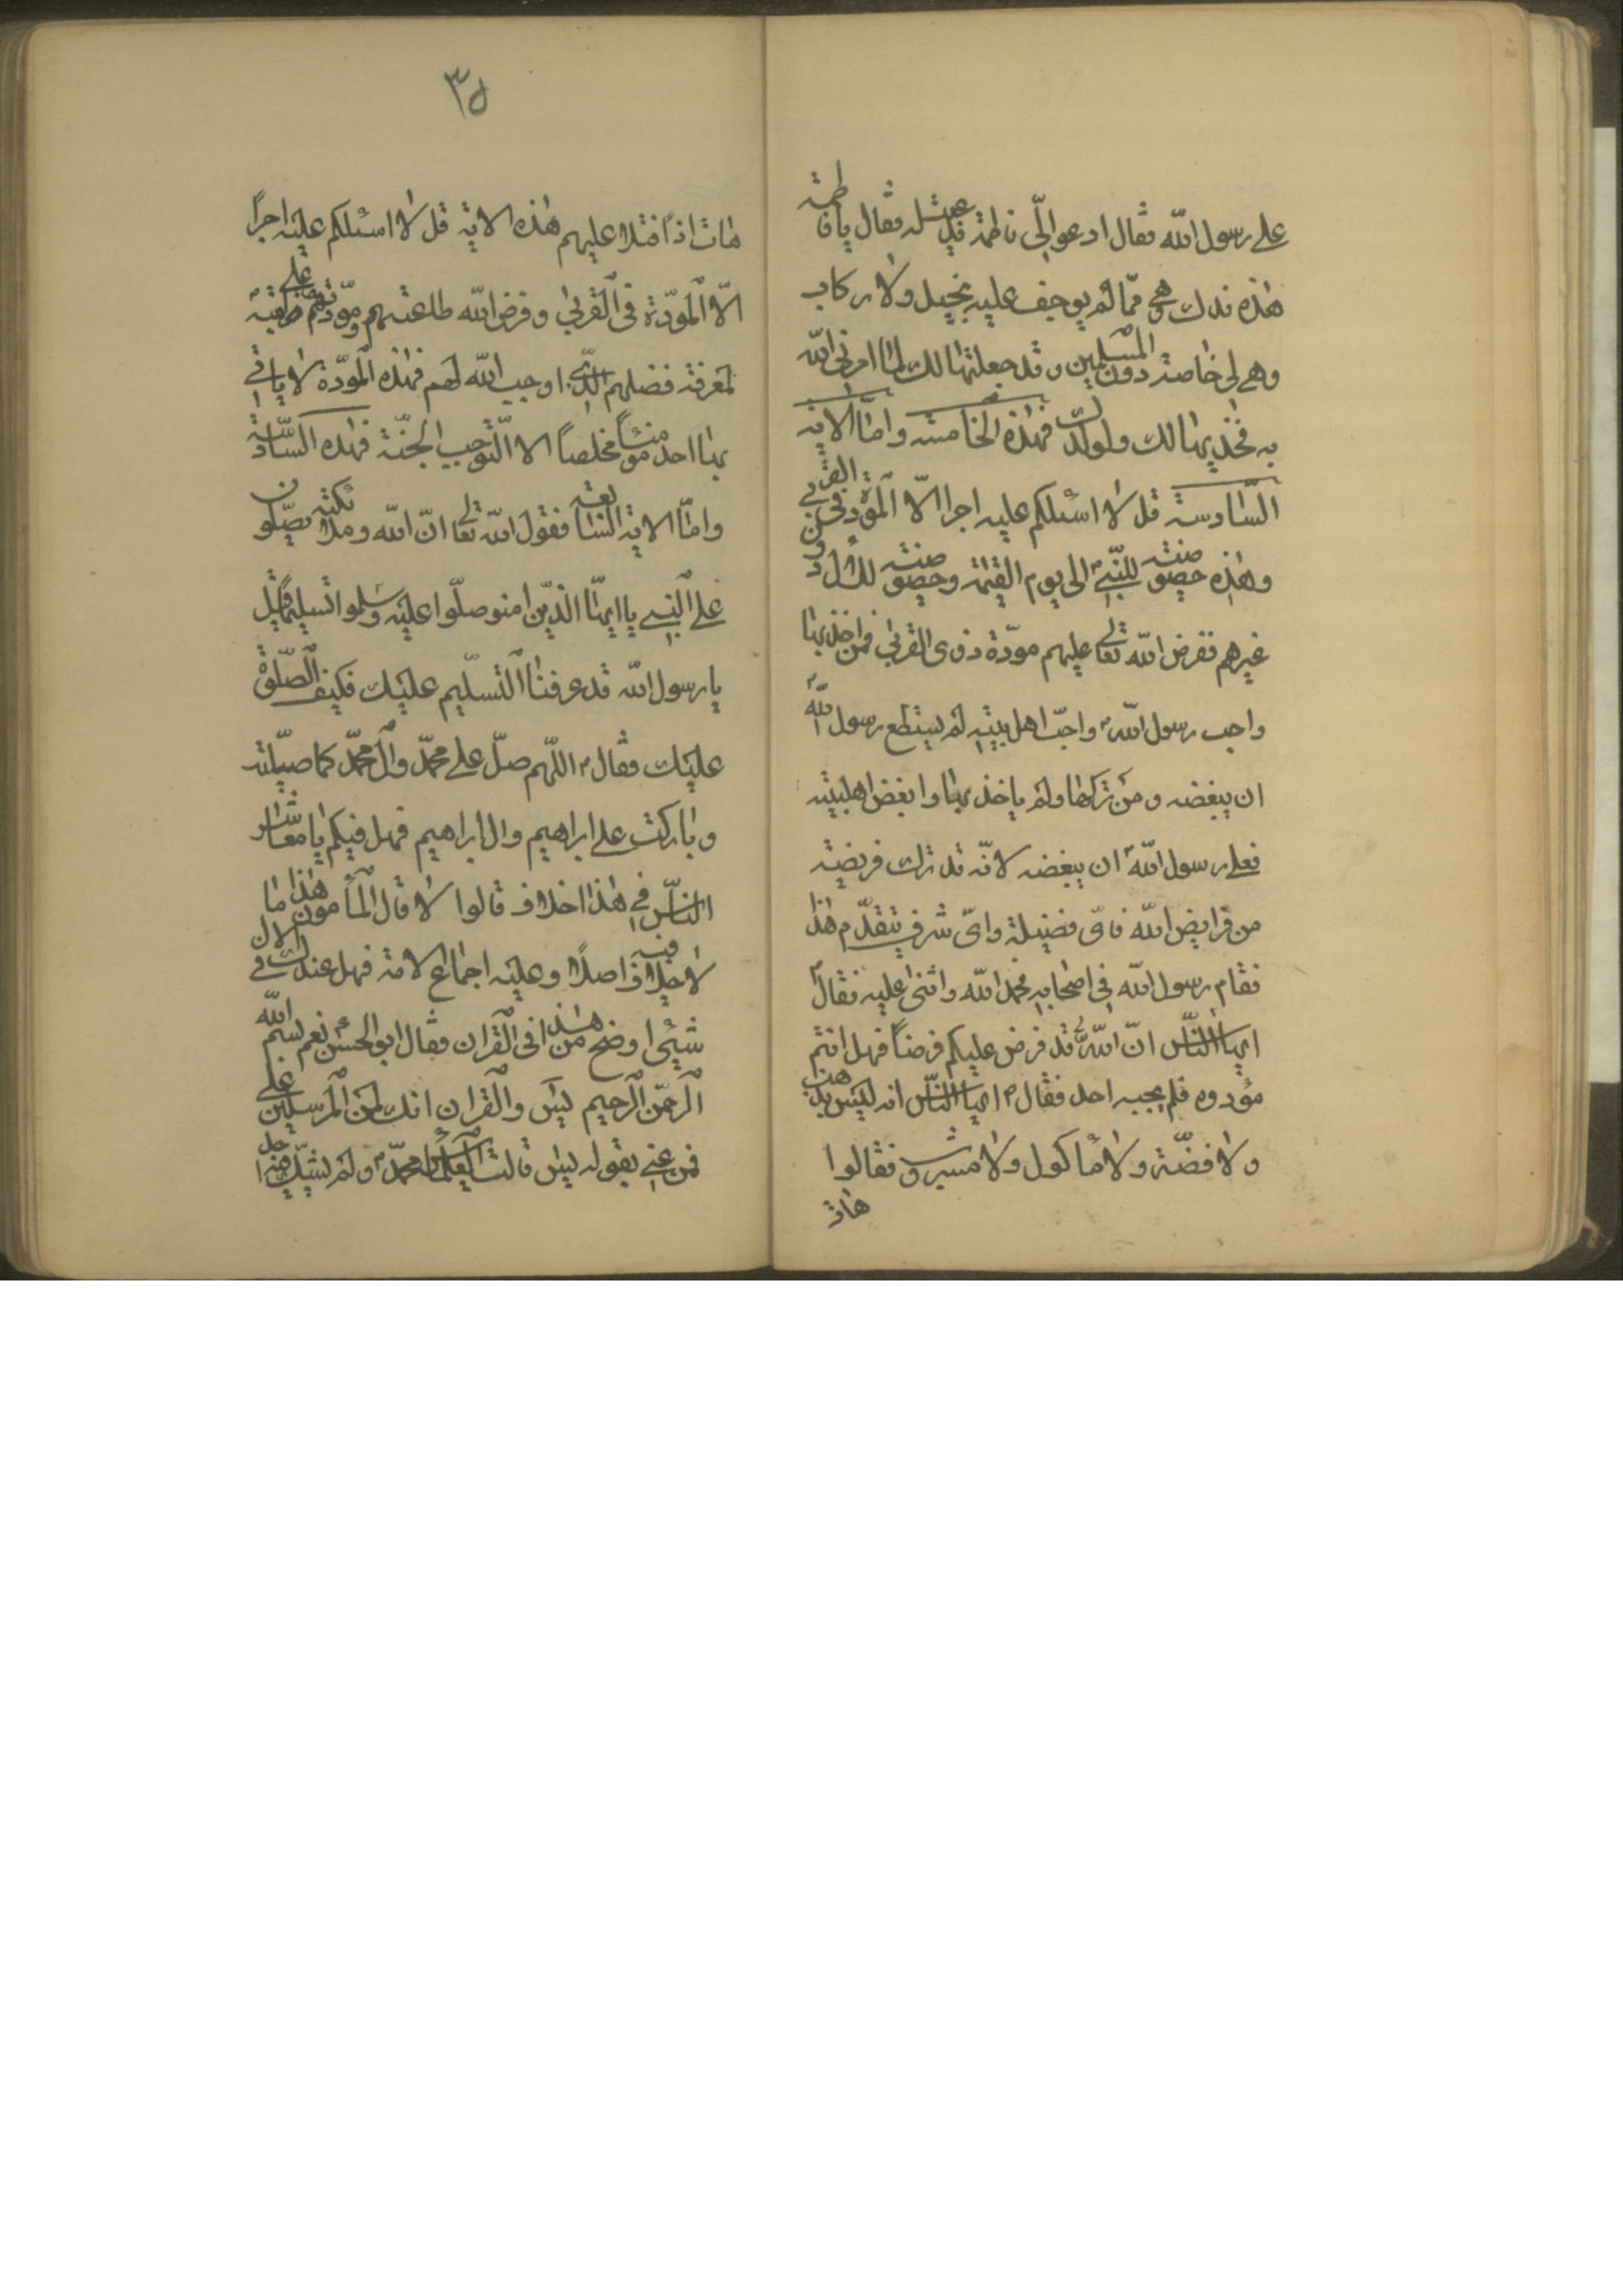 على رسول الله فقال ادعوا لي فاطمة فدعيت له فقال يا فاطمة
هذه فدك وهي مما لم يوجف عليه بخيل ولا ركاب
وهي لي خاصة دون المسلمين وقد جعلتها لك لما امرني الله
به فخذيها لك ولولدك فهذه الخامسة واما الاية
السادسة قل لا اسئلكم عليه اجرا الا المودة في القربى
وهذه خصوصية للنبي الى يوم القيمة وخصوصية للال دون
غيرهم ففرض الله تعالى عليهم مودة ذوى القربى فمن اخذ بها
واحب رسول الله واحب اهل بيته لم يستطع رسول الله
ان يبغضه ومن تركها ولم ياخذ بها وابغض اهلبيته
فعلى رسول الله ان يبغضه لانه قد ترك فريضة
من فرايض الله فاى فضيلة واى شرف يتقدم هذا
فقام رسول الله في اصحابه فحمد الله واثنى عليه فقال
ايها الناس ان الله قد فرض عليكم فرضاً فهل انتم
مؤدوه فلم يجبه احد فقال ايها الناس انه ليس بذهب
ولا فضة ولا ماكول ولا مشروب فقالوا
هات
٣٥
هات اذاً فتلا عليهم هذه الاية قل لا اسئلكم عليه اجراً
الا المودة في القربى وفرض الله طاعتهم ومودتهم على
لمعرفة فضلهم الذى اوجب الله لهم فهذه المودة لا ياتي
بها احد مومناً مخلصاً الا استوجب الجنة فهذه السادسة
واما الاية السابعة فقول الله تعالى ان الله وملائكته يصلون
على النبي يا ايها الذين امنو صلوا عليه وسلموا تسليما قيل
يا رسول الله قد عرفنا التسليم عليك فكيف الصلوة
عليك فقال اللهم صل على محمد وال محمد كما صليت
وباركت على ابراهيم وال ابراهيم فهل فيكم يا معاشر
الناس في هذا اخلاف قالوا لا قال المأمون هذا ما
لا خلاف فيه اصلا وعليه اجماع الامة فهل عندك في الال
شيئ اوضح من هذا في القران فقال ابو الحسن نعم بسم الله
الرحمن الرحيم يس والقران انك لمن المرسلين على
فمن عنى بقوله يس قالت العلماء محمد ولم يشك فيه احد